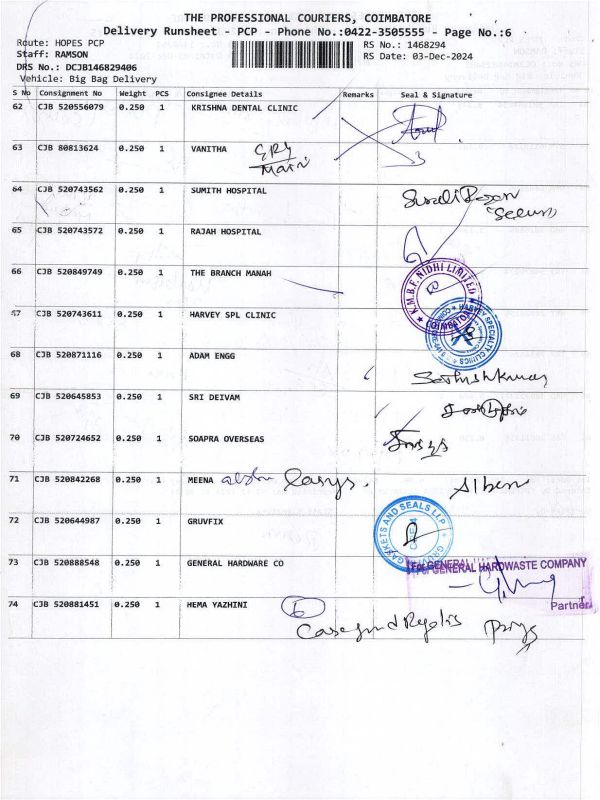 THE PROFESSIONAL COURIERS, COIMBATORE
Delivery Runsheet - PCP - Phone No.:0422-3505555 - Page No.:6
Route: HOPES PCP
RS No.: 1468294
Staff: RAMSON
RS Date: 03-Dec-2024
DRS No.: DCJB146829406
Vehicle: Big Bag Delivery
S No Consignment No Weight PCS Consignee Details Remarks Seal & Signature
62 CJB 520556079 0.250 1 KRISHNA DENTAL CLINIC
63 CJB 80813624 0.250 1 VANITHA
Main
64 CJB 520743562 0.250 1 SUMITH HOSPITAL
65 CJB 520743572 0.250 1 RAJAH HOSPITAL
66 CJB 520849749 0.250 1 THE BRANCH MANAH
K.M.B.F. NIDHI LIMITED
COIMBATORE
67 CJB 520743611 0.250 1 HARVEY SPL CLINIC
HARVEY SPECIALITY CLINICS
68 CJB 520871116 0.250 1 ADAM ENGG
Sathishkumar
69 CJB 520645853 0.250 1 SRI DEIVAM
70 CJB 520724652 0.250 1 SOAPRA OVERSEAS
71 CJB 520842268 0.250 1 MEENA
72 CJB 520644987 0.250 1 GRUVFIX
GASKETS AND SEALS LLP
73 CJB 520888548 0.250 1 GENERAL HARDWARE CO
For GENERAL HARDWASTE COMPANY
Partner
74 CJB 520881451 0.250 1 HEMA YAZHINI